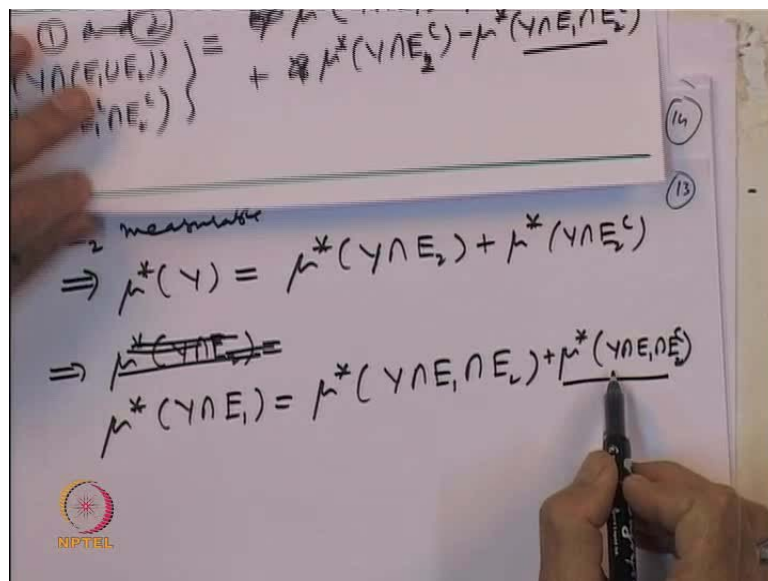 ① and ② = μ*(Y∩
(Y∩(E₁∪E₂)) + μ*(Y∩E₂ᶜ) - μ*(Y∩E₁∩E₂ᶜ)
E₁ᶜ∩E₂ᶜ) }
14
13
₂ measurable
⇒ μ*(Y) = μ*(Y∩E₂) + μ*(Y∩E₂ᶜ)
⇒ μ*(Y∩E₂) =
μ*(Y∩E₁) = μ*(Y∩E₁∩E₂) + μ*(Y∩E₁∩E₂ᶜ)
NPTEL